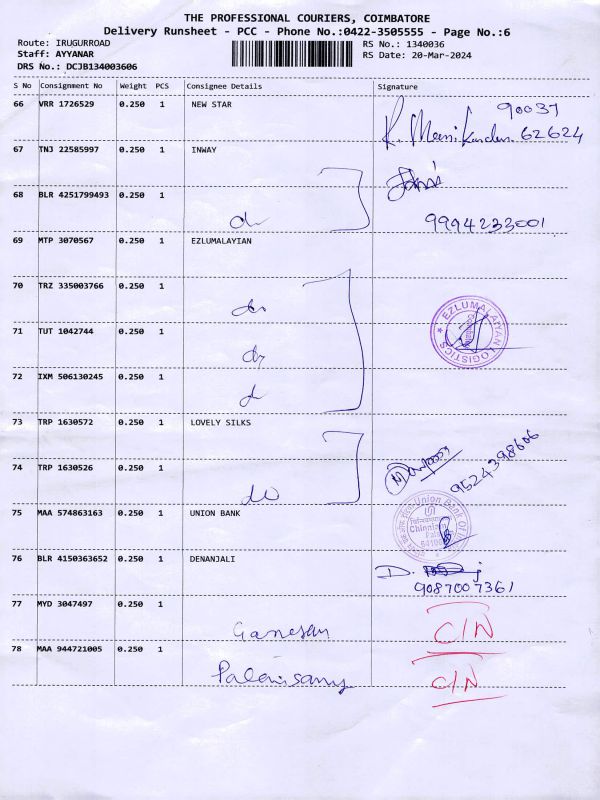 THE PROFESSIONAL COURIERS, COIMBATORE
Delivery Runsheet - PCC - Phone No.:0422-3505555 - Page No.:6
Route: IRUGURROAD
Staff: AYYANAR
DRS No.: DCJB134003606
RS No.: 1340036
RS Date: 20-Mar-2024
S No Consignment No Weight PCS Consignee Details Signature
66 VRR 1726529 0.250 1 NEW STAR 90037
K. Manikandan 62624
67 TNJ 22585997 0.250 1 INWAY
68 BLR 4251799493 0.250 1
do 9994233001
69 MTP 3070567 0.250 1 EZLUMALAYIAN
70 TRZ 335003766 0.250 1
do
EZLUMALAIYAN LOGISTICS
71 TUT 1042744 0.250 1
do
72 IXM 506130245 0.250 1
do
73 TRP 1630572 0.250 1 LOVELY SILKS
9524398606
74 TRP 1630526 0.250 1
do
75 MAA 574863163 0.250 1 UNION BANK
Union Bank Of
76 BLR 4150363652 0.250 1 DENANJALI
D.
9087007361
77 MYD 3047497 0.250 1
Ganesan C/N
78 MAA 944721005 0.250 1
Palanisamy C/N